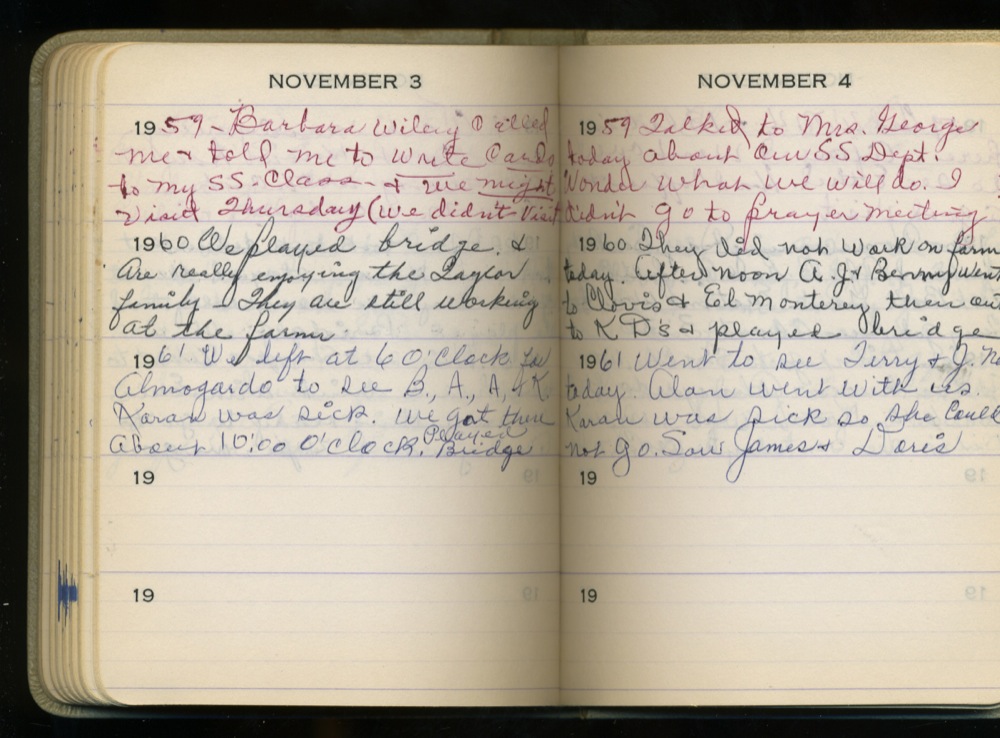 NOVEMBER 3
1959 - Barbara Wiley Called
me & told me to write Cards
to my SS. Class - & we might
Visit Thursday (we didn't visit
1960 We played bridge. &
Are really enjoying the Taylor
family - They are still working
at the farm
1961 We left at 6 O'Clock for
Almogardo to see B., A., A, & K.
Karan was sick. We got there
About 10:00 O'clock. Played
Bridge
19
19
NOVEMBER 4
1959 Talked to Mrs. George
today about our SS Dept.
Wonder what we will do. I
didn't go to prayer meeting
1960 They did not work on farm
today. After noon A. J. & Benny went
to Clovis & El Monterey then out
to K D's & played bridge
1961 Went to see Terry & J.
today. Alan went with us.
Karan was sick so she could
not go. Saw James & Doris
19
19